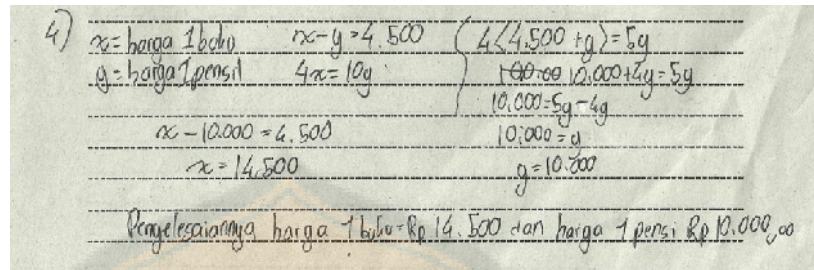 4) x = harga 1 buku
y = harga 1 pensil
x - y = 4.500
4x = 10y
x - 10.000 = 4.500
x = 14.500
4(4.500 + y) = 5y
10.000 + 4y = 5y
10.000 = 5y - 4y
10.000 = y
y = 10.000
Penyelesaiannya harga 1 buku = Rp 14.500 dan harga 1 pensi Rp 10.000,00